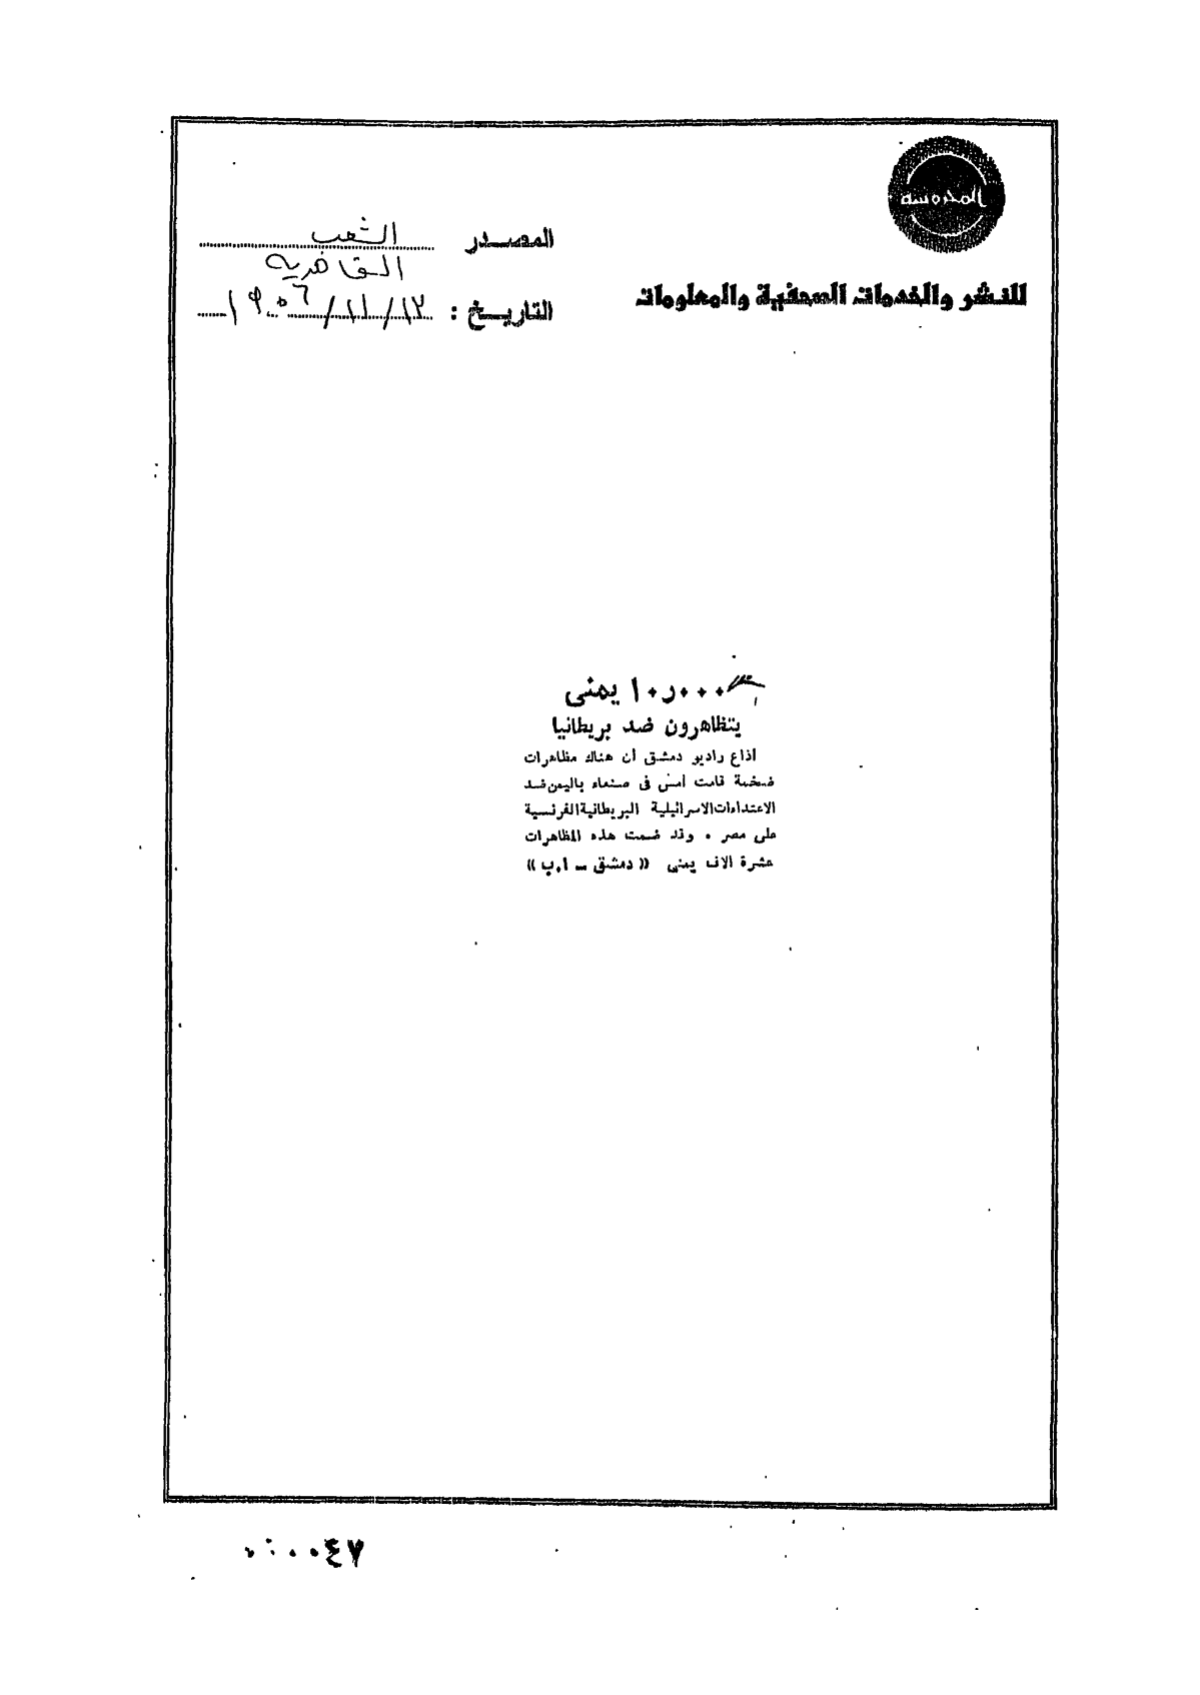 المحروسة
للنشر والخدمات الصحفية والمعلومات
المصدر الشعب
القاهرية
التاريخ : ١٣/١١/١٩٥٦
١٠٫٠٠٠ يمنى
يتظاهرون ضد بريطانيا
اذاع راديو دمشق أن هناك مظاهرات
ضخمة قامت أمس فى صنعاء باليمن ضد
الاعتداءات الاسرائيلية البريطانية الفرنسية
على مصر . وقد ضمت هذه المظاهرات
عشرة الاف يمنى « دمشق ـ ا.ب »